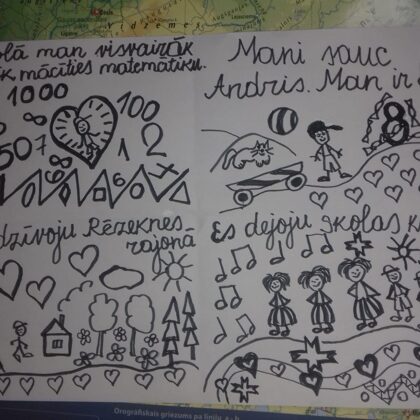 olā man visvairāk
k mācīties matemātiku.
1000
100
8
507
1
2
8
6
Mani sauc
Andris. Man ir
8
dzīvoju Rēzeknes
rajonā
Es dejoju skolas k
Orogrāfiskais griezums pa līniju a - b